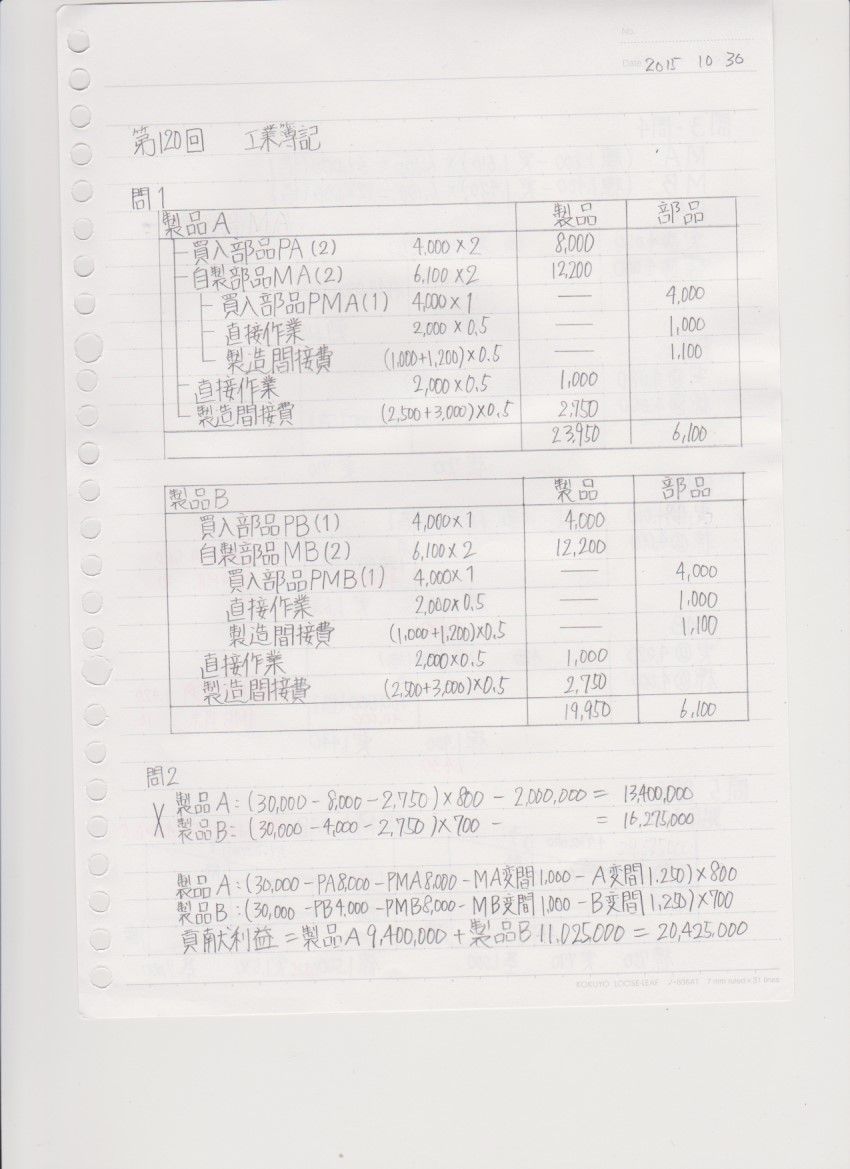 No.
Date 2015 10 30
第120回 工業簿記
問1
製品A 製品 部品
買入部品PA(2) 4,000×2 8,000
自製部品MA(2) 6,100×2 12,200
買入部品PMA(1) 4,000×1 — 4,000
直接作業 2,000×0.5 — 1,000
製造間接費 (1,000+1,200)×0.5 — 1,100
直接作業 2,000×0.5 1,000
製造間接費 (2,500+3,000)×0.5 2,750
23,950 6,100
製品B 製品 部品
買入部品PB(1) 4,000×1 4,000
自製部品MB(2) 6,100×2 12,200
買入部品PMB(1) 4,000×1 — 4,000
直接作業 2,000×0.5 — 1,000
製造間接費 (1,000+1,200)×0.5 — 1,100
直接作業 2,000×0.5 1,000
製造間接費 (2,500+3,000)×0.5 2,750
19,950 6,100
問2
X 製品A:(30,000-8,000-2,750)×800 - 2,000,000 = 13,400,000
製品B:(30,000-4,000-2,750)×700 - = 16,275,000
製品A:(30,000-PA8,000-PMA8,000-MA変間1,000-A変間1,250)×800
製品B:(30,000-PB4,000-PMB8,000-MB変間1,000-B変間1,250)×700
貢献利益=製品A 9,400,000+製品B 11,025,000=20,425,000
KOKUYO LOOSE-LEAF ノ-836AT 7 mm ruled × 31 lines